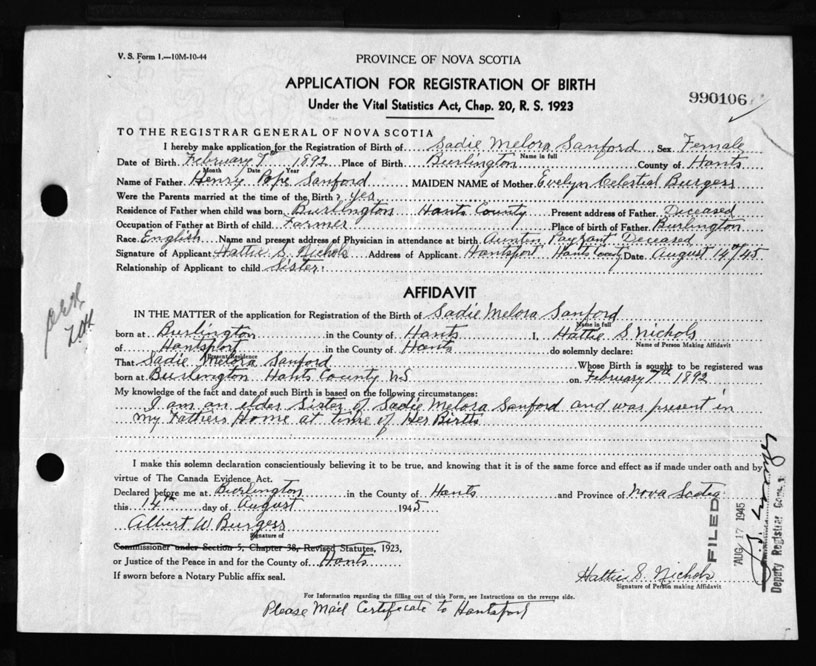 V. S. Form 1.—10M-10-44
PROVINCE OF NOVA SCOTIA
APPLICATION FOR REGISTRATION OF BIRTH
Under the Vital Statistics Act, Chap. 20, R. S. 1923
990106
TO THE REGISTRAR GENERAL OF NOVA SCOTIA
I hereby make application for the Registration of Birth of Sadie Melora Sanford Sex Female
Name in full
Date of Birth February 7th 1892 Place of Birth Burlington County of Hants
Month Date Year
Name of Father Henry Pope Sanford MAIDEN NAME of Mother Evelyn Celestial Burgess
Were the Parents married at the time of the Birth? yes
Residence of Father when child was born Burlington Hants County Present address of Father Deceased
Occupation of Father at Birth of child Farmer Place of birth of Father Burlington
Race English Name and present address of Physician in attendance at birth Deceased
Signature of Applicant Hattie S Nichols Address of Applicant Hantsport Hants County Date August 14th/45
Relationship of Applicant to child Sister
AFFIDAVIT
IN THE MATTER of the application for Registration of the Birth of Sadie Melora Sanford
Name in full
born at Burlington in the County of Hants I, Hattie S Nichols
Name of Person Making Affidavit
of Hantsport in the County of Hants do solemnly declare:
Present Residence
That Sadie Melora Sanford Whose Birth is sought to be registered was
born at Burlington Hants County N S on February 7th 1892
My knowledge of the fact and date of such Birth is based on the following circumstances:
I am an elder Sister of Sadie Melora Sanford and was present in
my Fathers Home at time of Her Birth
I make this solemn declaration conscientiously believing it to be true, and knowing that it is of the same force and effect as if made under oath and by
virtue of The Canada Evidence Act.
Declared before me at Burlington in the County of Hants and Province of Nova Scotia
this 14th day of August 1945
Albert W Burgess
Signature of
Commissioner under Section 5, Chapter 38, Revised Statutes, 1923,
or Justice of the Peace in and for the County of Hants
If sworn before a Notary Public affix seal.
Hattie S. Nichols
Signature of Person making Affidavit
For Information regarding the filling out of this Form, see Instructions on the reverse side.
Please Mail Certificate to Hantsport
FILED
AUG 17 1945
Deputy Registrar General